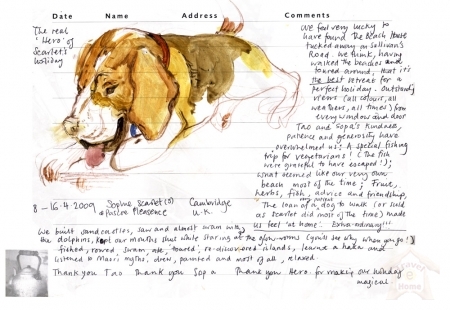 Date Name Address Comments
The real
'Hero' of
Scarlet's
holiday
We feel very lucky to
have found The Beach House
tucked away on Sullivan's
Road. We think, having
walked the beaches and
toured around, that it's
the best retreat for a
perfect holiday. Outstanding
views (all colours, all
weathers, all times) from
every window and door
Tao and Sopa's kindness,
patience and generosity have
overwhelmed us: A special fishing
trip for vegetarians! (The fish
were grateful to have escaped!);
what seemed like our very own
beach most of the time; Fruit,
herbs, fish, advice and friendship,
The loan of a dog to walk (or sold
as scarlet did most of the time) made
us feel 'at home'. Extra-ordinary!!!
8-16.4.2009 Sophie Scarlet
Pleasence
Cambridge
U.K
We built sandcastles, saw and almost swam with
the dolphins, our mouths shut while staring at the (you'll see why when you go!)
fished, rowed, swam, ate, re-discovered islands, learnt a haka and
listened to Maori myths, drew, painted and most of all, relaxed.
Thank you Tao Thank you Sopa Thank you Hero. for making our holiday
magical
Home